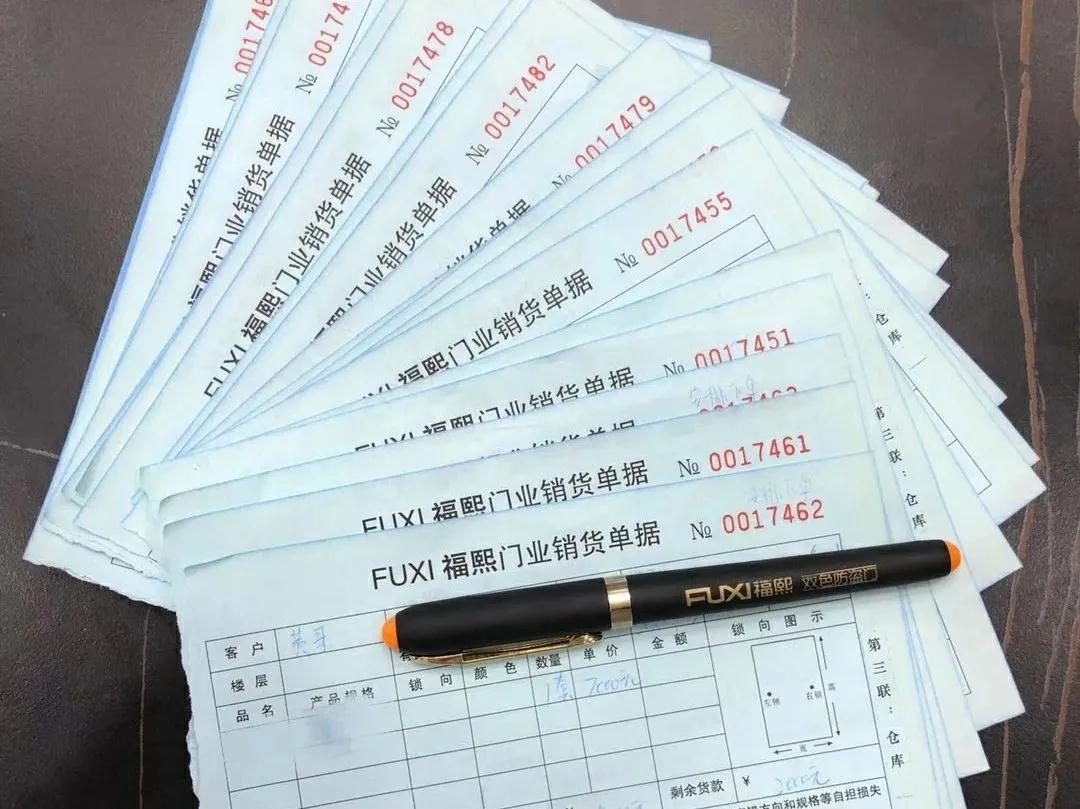 № 001746
№ 00174
№ 0017478
№ 0017482
№ 0017479
门业销货单据
熙门业销货单据
FUXI 福熙门业销货单据
门业销货单据
单据
FUXI 福熙门业销货单据 № 0017455
FUXI 福熙门业销货单据 № 0017451
仓库
第三联：仓库
FUXI 福熙门业销货单据 № 0017461
FUXI 福熙门业销货单据 № 0017462
FUXI福熙 双色防盗门
客户
楼层
品名 产品规格 锁向 颜色 数量 单价 金额 锁向图示
1套 7000元
左锁 右锁 高
宽
第三联：仓库
剩余货款 ¥ 2000元
方向和规格等自担损失